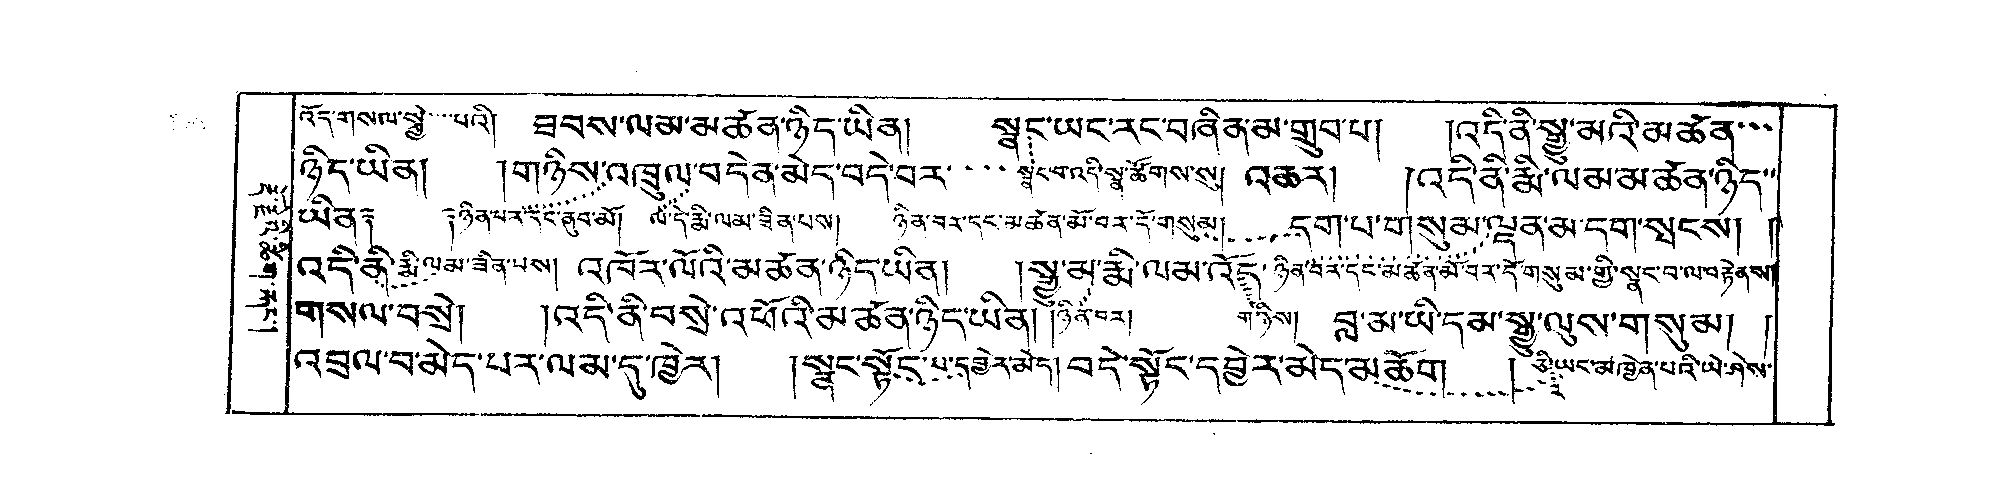 འོད་གསལ་སྒྱུ་པའི། ཐབས་ལམ་མཚན་ཉིད་ཡིན། སྣང་ཡང་རང་བཞིན་མ་གྲུབ་པ། །འདི་ནི་སྒྱུ་མའི་མཚན་
ཉིད་ཡིན། །གཉིས་འཁྲུལ་བདེན་མེད་བདེ་བར་ སྣང་བ་འདི་སྣ་ཚོགས་སུ། འཆར། །འདི་ནི་རྨི་ལམ་མཚན་ཉིད་
ཡིན༔ ༔ཉིན་པར་དང་ནུབ་མོ། ལ་དེ་རྨི་ལམ་ཟིན་པས། ཉིན་བར་དང་མཚན་མོ་བར་དོ་གསུམ། དག་པ་གསུམ་ལྡན་མ་དག་སྤངས། །
འདི་ནི་རྨི་ལམ་ཟིན་པས། འཁོར་ལོའི་མཚན་ཉིད་ཡིན། །སྒྱུ་མ་རྨི་ལམ་འོད་ ཉིན་བར་དང་མཚན་མོ་བར་དོ་གསུམ་གྱི་སྣང་བ་ལ་བརྟེནས།
གསལ་བསྲེ། །འདི་ནི་བསྲེ་འཕོའི་མཚན་ཉིད་ཡིན། །ཉིན་བར། གཉིས། བླ་མ་ཡི་དམ་སྒྱུ་ལུས་གསུམ། །
འབྲལ་བ་མེད་པར་ལམ་དུ་ཁྱེར། །སྣང་སྟོང་པ་དབྱེར་མེད། བདེ་སྟོང་དབྱེར་མེད་མཆོག །ཅི་ཡང་མཁྱེན་པའི་ཡེ་ཤེས་